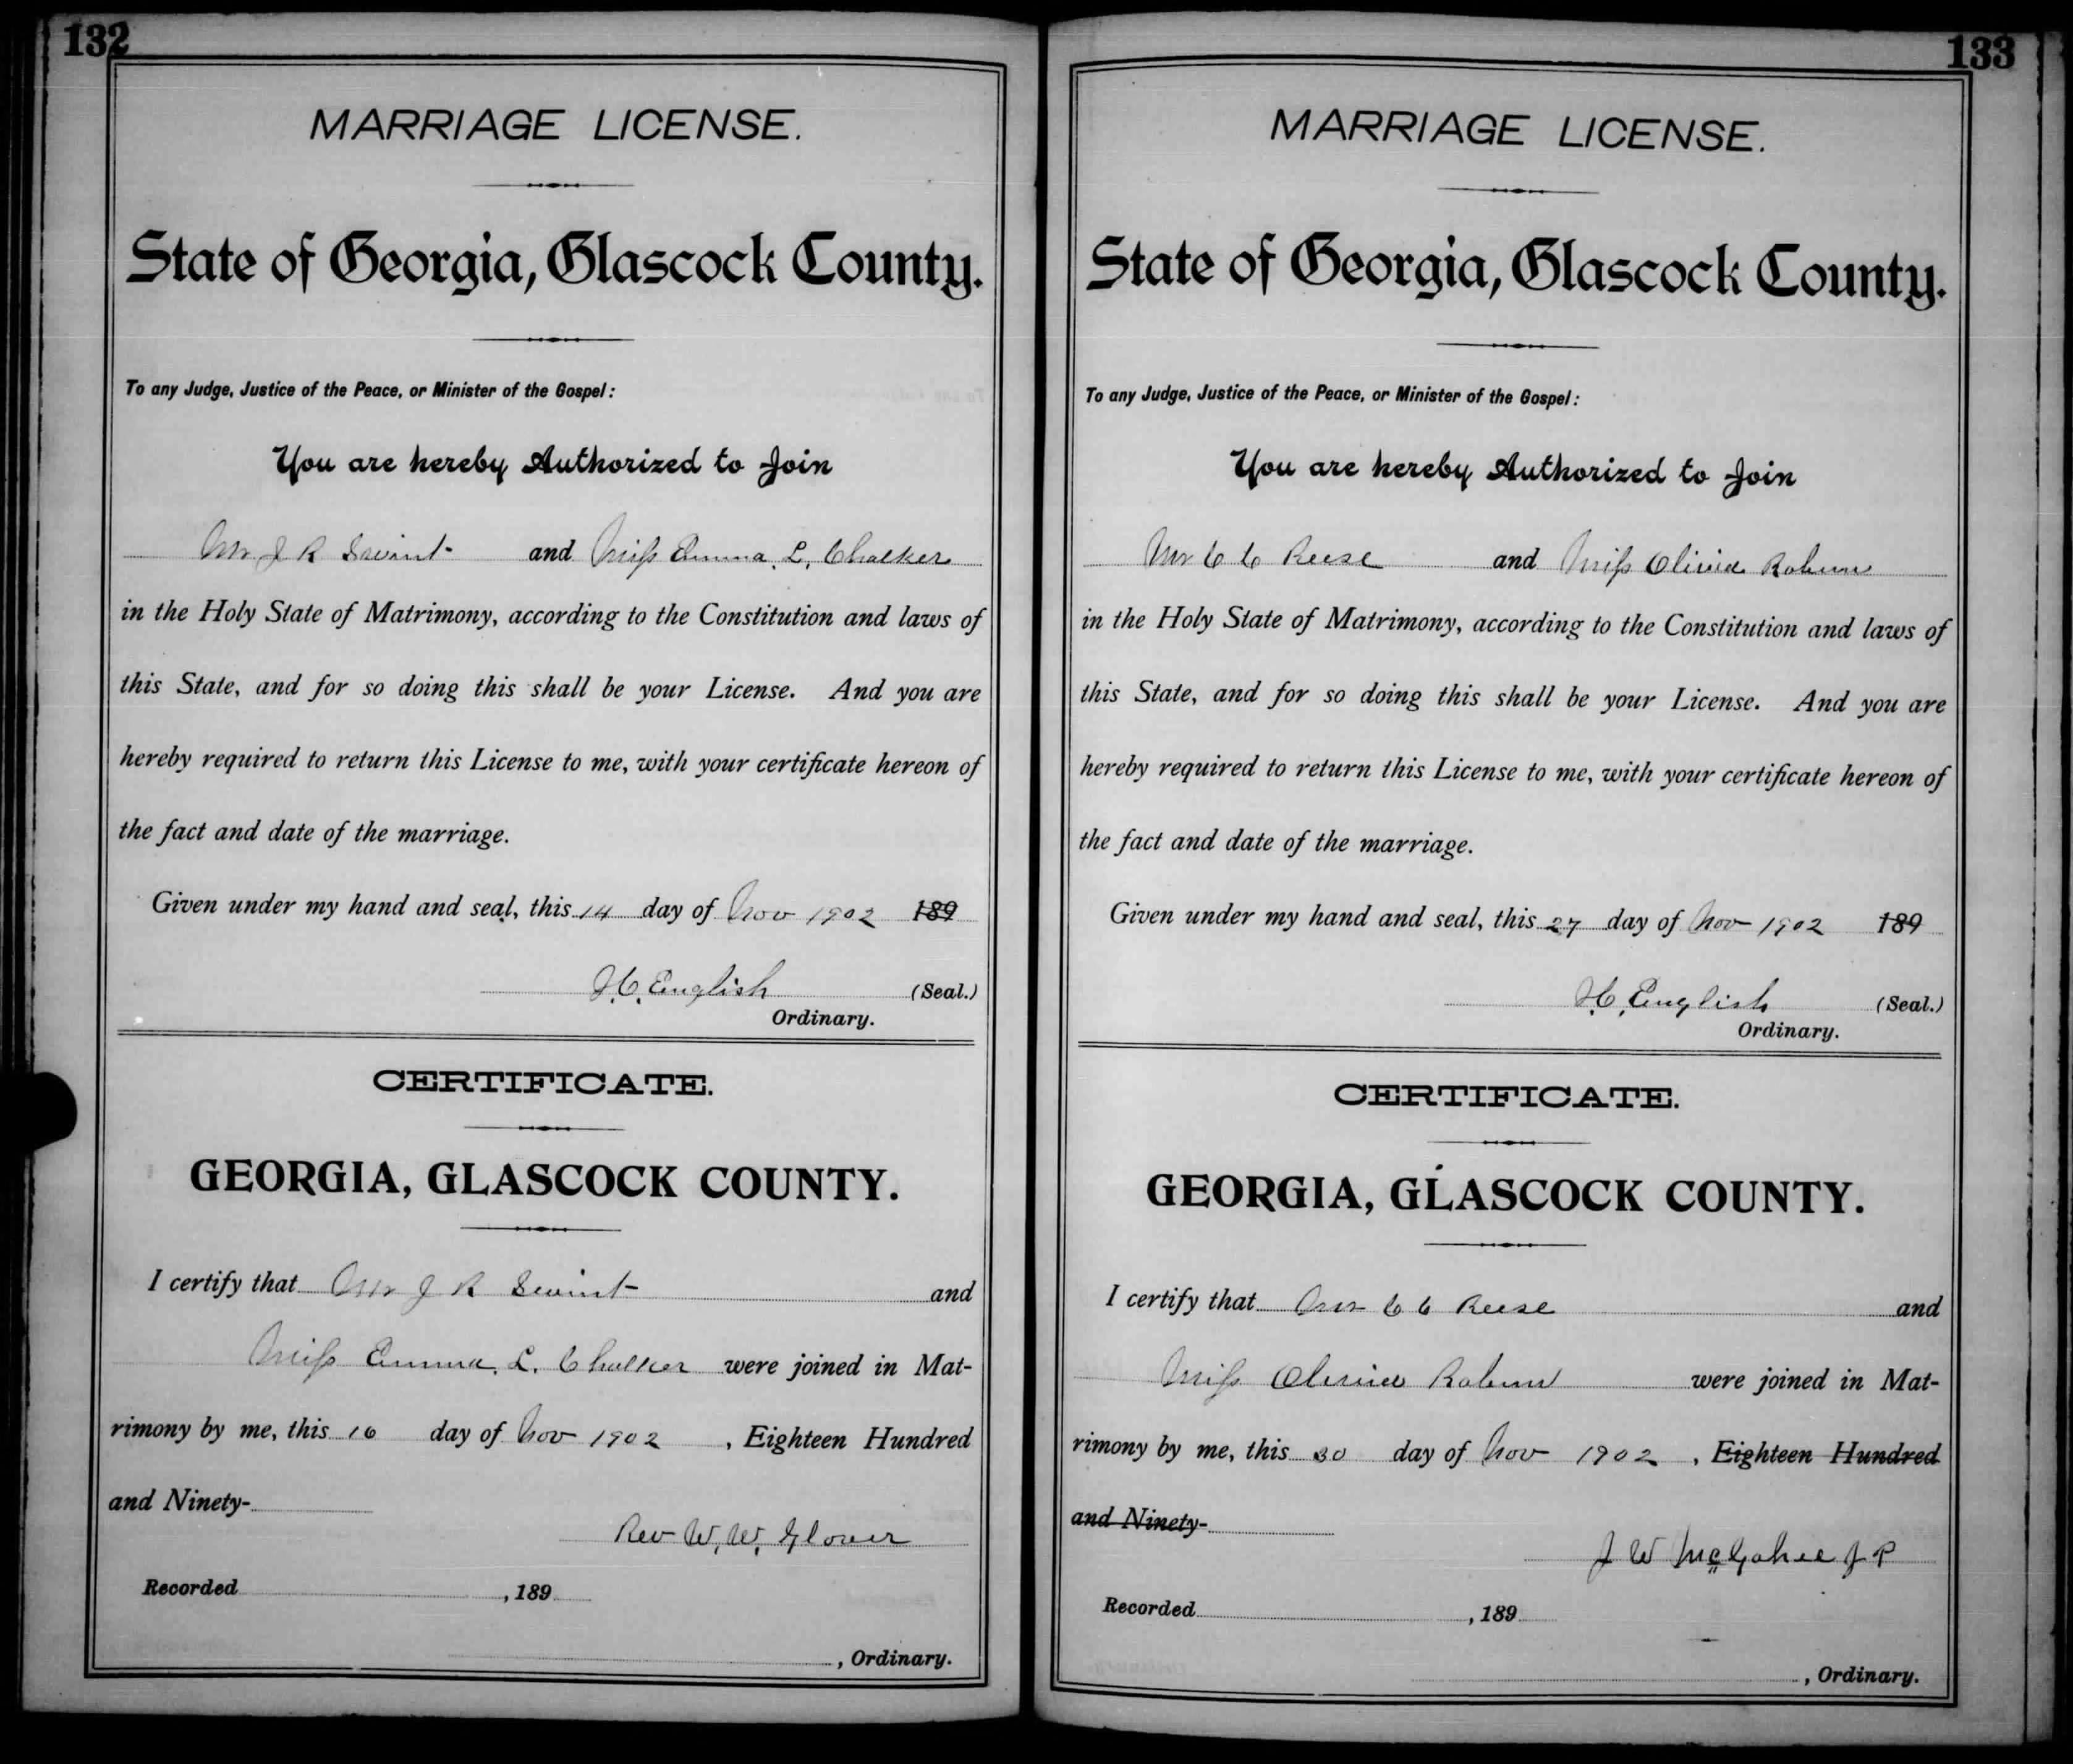 132
MARRIAGE LICENSE.
State of Georgia, Glascock County.
To any Judge, Justice of the Peace, or Minister of the Gospel:
You are hereby Authorized to Join
Mr J R Swint and Miss Emma. L. Chalker
in the Holy State of Matrimony, according to the Constitution and laws of
this State, and for so doing this shall be your License. And you are
hereby required to return this License to me, with your certificate hereon of
the fact and date of the marriage.
Given under my hand and seal, this 14 day of Nov 1902 189
English (Seal.)
Ordinary.
CERTIFICATE.
GEORGIA, GLASCOCK COUNTY.
I certify that Mr J R Swint and
Miss Emma. L. Chalker were joined in Mat-
rimony by me, this 16 day of Nov 1902 , Eighteen Hundred
and Ninety-
Rev W. W. Glover
Recorded , 189
, Ordinary.
133
MARRIAGE LICENSE.
State of Georgia, Glascock County.
To any Judge, Justice of the Peace, or Minister of the Gospel:
You are hereby Authorized to Join
Mr C C Reese and Miss Olivia
in the Holy State of Matrimony, according to the Constitution and laws of
this State, and for so doing this shall be your License. And you are
hereby required to return this License to me, with your certificate hereon of
the fact and date of the marriage.
Given under my hand and seal, this 27 day of Nov 1902 189
English (Seal.)
Ordinary.
CERTIFICATE.
GEORGIA, GLASCOCK COUNTY.
I certify that Mr C C Reese and
Miss Olivia were joined in Mat-
rimony by me, this 30 day of Nov 1902 , Eighteen Hundred
and Ninety-
J W McGahee J P
Recorded , 189
, Ordinary.